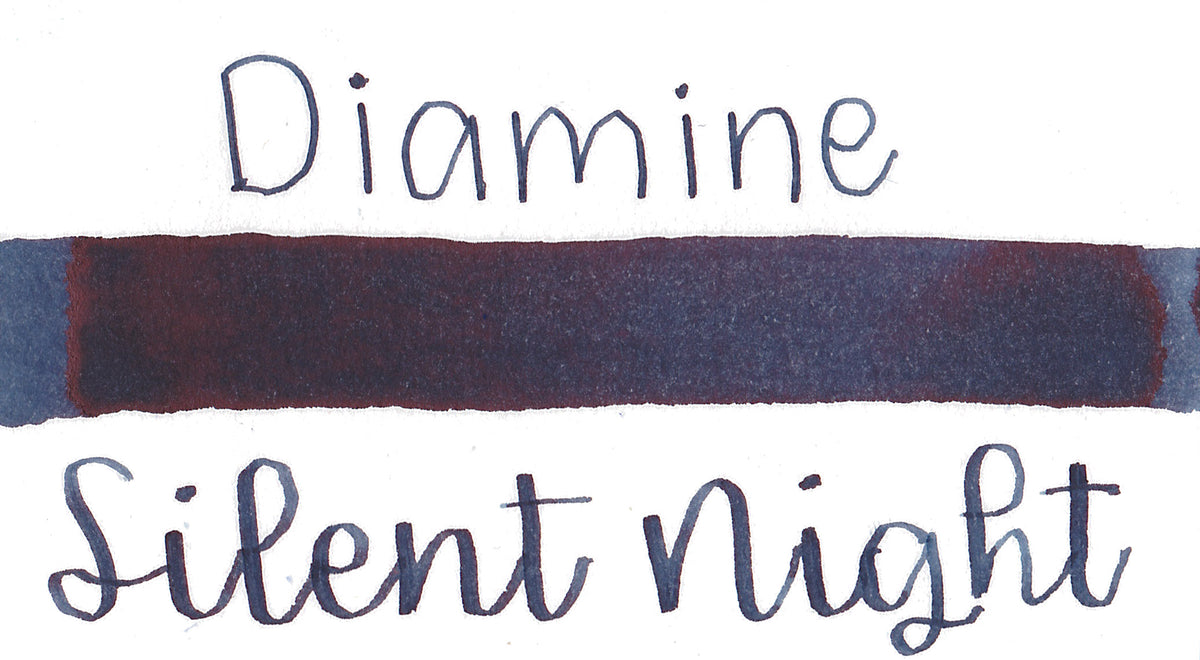 Diamine
Silent Night